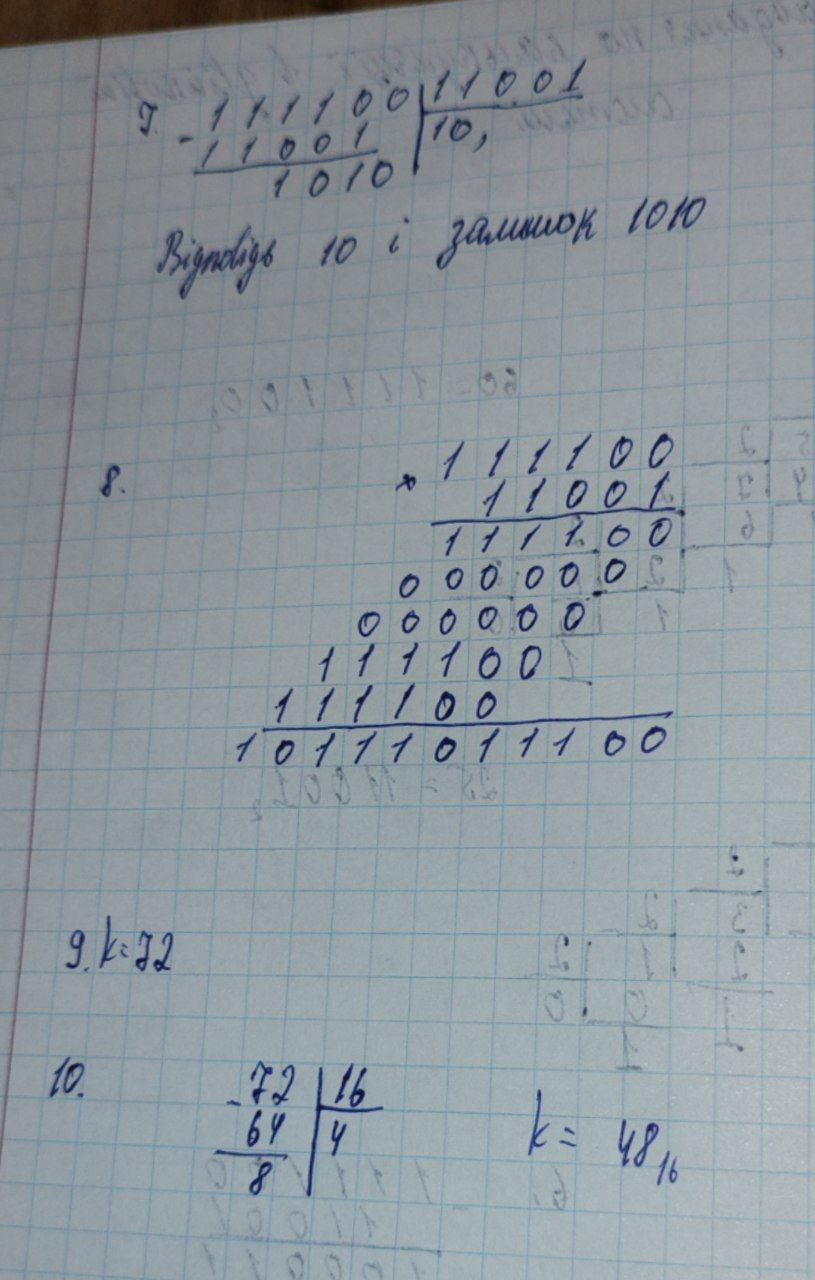 7. - 111100 | 11001
11001 | 10,
1010
Відповідь 10 і залишок 1010
8. × 111100
11001
111100
000000
000000
111100
111100
10111011100
9. k=72
10. - 72 | 16
64 | 4
8
k = 48₁₆